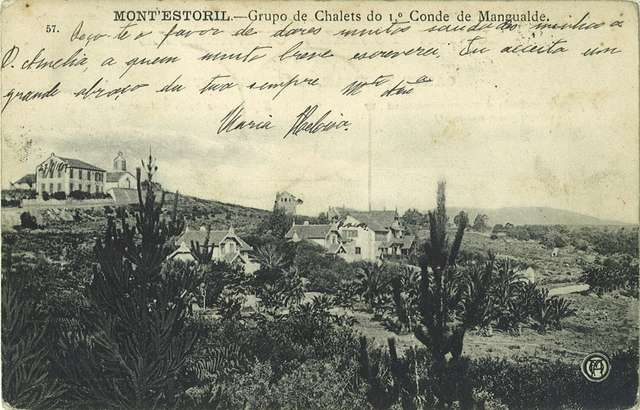 MONT'ESTORIL.—Grupo de Chalets do 1.º Conde de Mangualde.
57.
Peço-te o favor de dares muitas saudades minhas á
D. Amelia, a quem muito breve escreverei. Tu acceita um
grande abraço da tua sempre Mto Ama
Maria Heloisa.